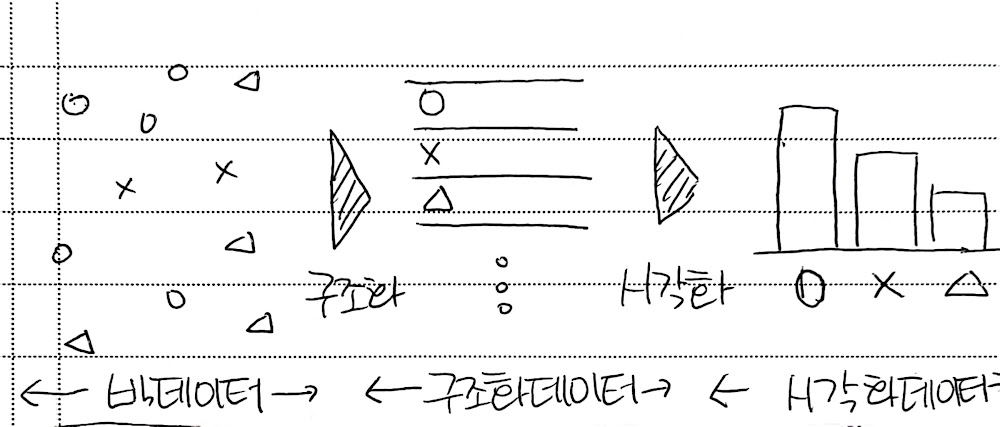 구조화
시각화
O X △
← 빅데이터 → ← 구조화데이터 → ← 시각화데이터